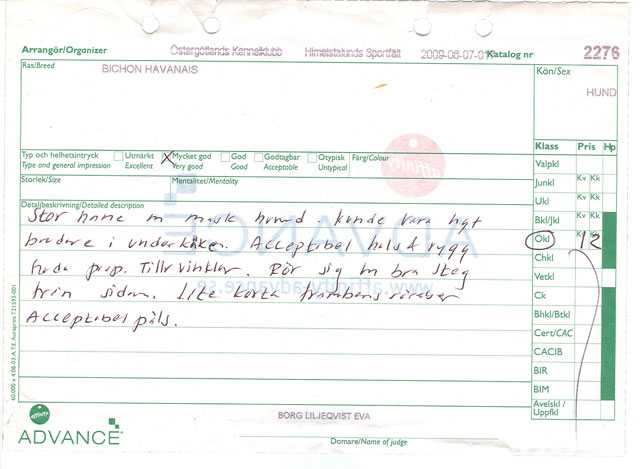 Arrangör/Organizer Östergötlands Kennelklubb Himelstalunds Sportfält 2009-06-07-01 Katalog nr 2276
Ras/Breed BICHON HAVANAIS Kön/Sex
HUND
Klass Pris Hp
Typ och helhetsintryck Utmärkt X Mycket god God Godtagbar Otypisk Färg/Colour
Type and general impression Excellent Very good Good Acceptable Untypical
Valpkl
Storlek/Size Mentalitet/Mentality
Junkl Kv Kk
Ukl Kv Kk
Detaljbeskrivning/Detailed description
Stor hane m mask huvud. Kunde vara ngt
Bkl/Jkl Kv Kk
bredare i underkäken. Acceptabel hals & rygg
Okl 12
Chkl
goda prop. Tillr vinklar. Rör sig m bra steg
Vetkl
från sidan. Lite korta frambensrörelser
Ck
Acceptabel päls.
Bhkl/Btkl
Cert/CAC
CACIB
BIR
BIM
Avelskl/
Uppfkl
affinity
ADVANCE
www.affinity-advance.se
BORG LILJEQVIST EVA
Domare/Name of judge
affinity
ADVANCE